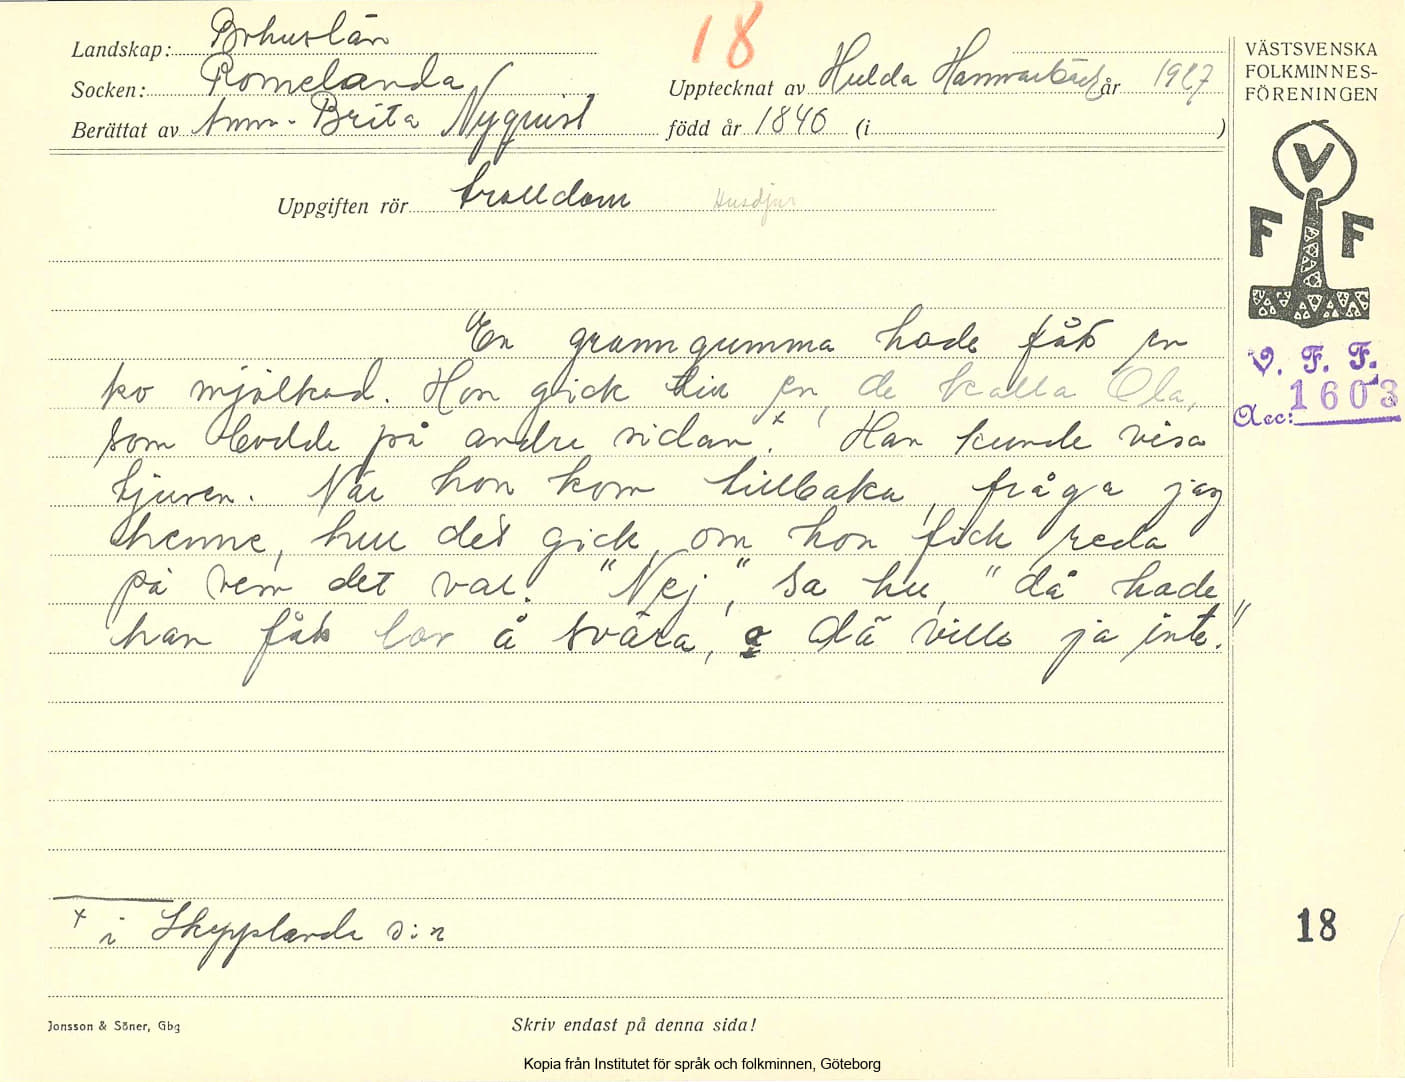 Landskap: Bohuslän
Socken: Romelanda
Berättat av Anna-Brita Nyquist
18
Upptecknat av Hulda Hammarbäck år 1927
född år 1846 (i )
Uppgiften rör trolldom Husdjur
En granngumma hade fått en
ko mjölkad. Hon gick till en, de kalla Ola,
som bodde på andre sidan.x Han kunde visa
tjuven. När hon kom tillbaka, fråga jag
henne, hur det gick, om hon fick reda
på vem det var. "Nej", sa hu, "då hade
han fått lov å svära, å dä ville ja inte."
x i Skepplanda s:n
Jonsson & Söner, Gbg
Skriv endast på denna sida!
VÄSTSVENSKA
FOLKMINNES-
FÖRENINGEN
V
F F
V. F. F.
Acc: 1603
18
Kopia från Institutet för språk och folkminnen, Göteborg